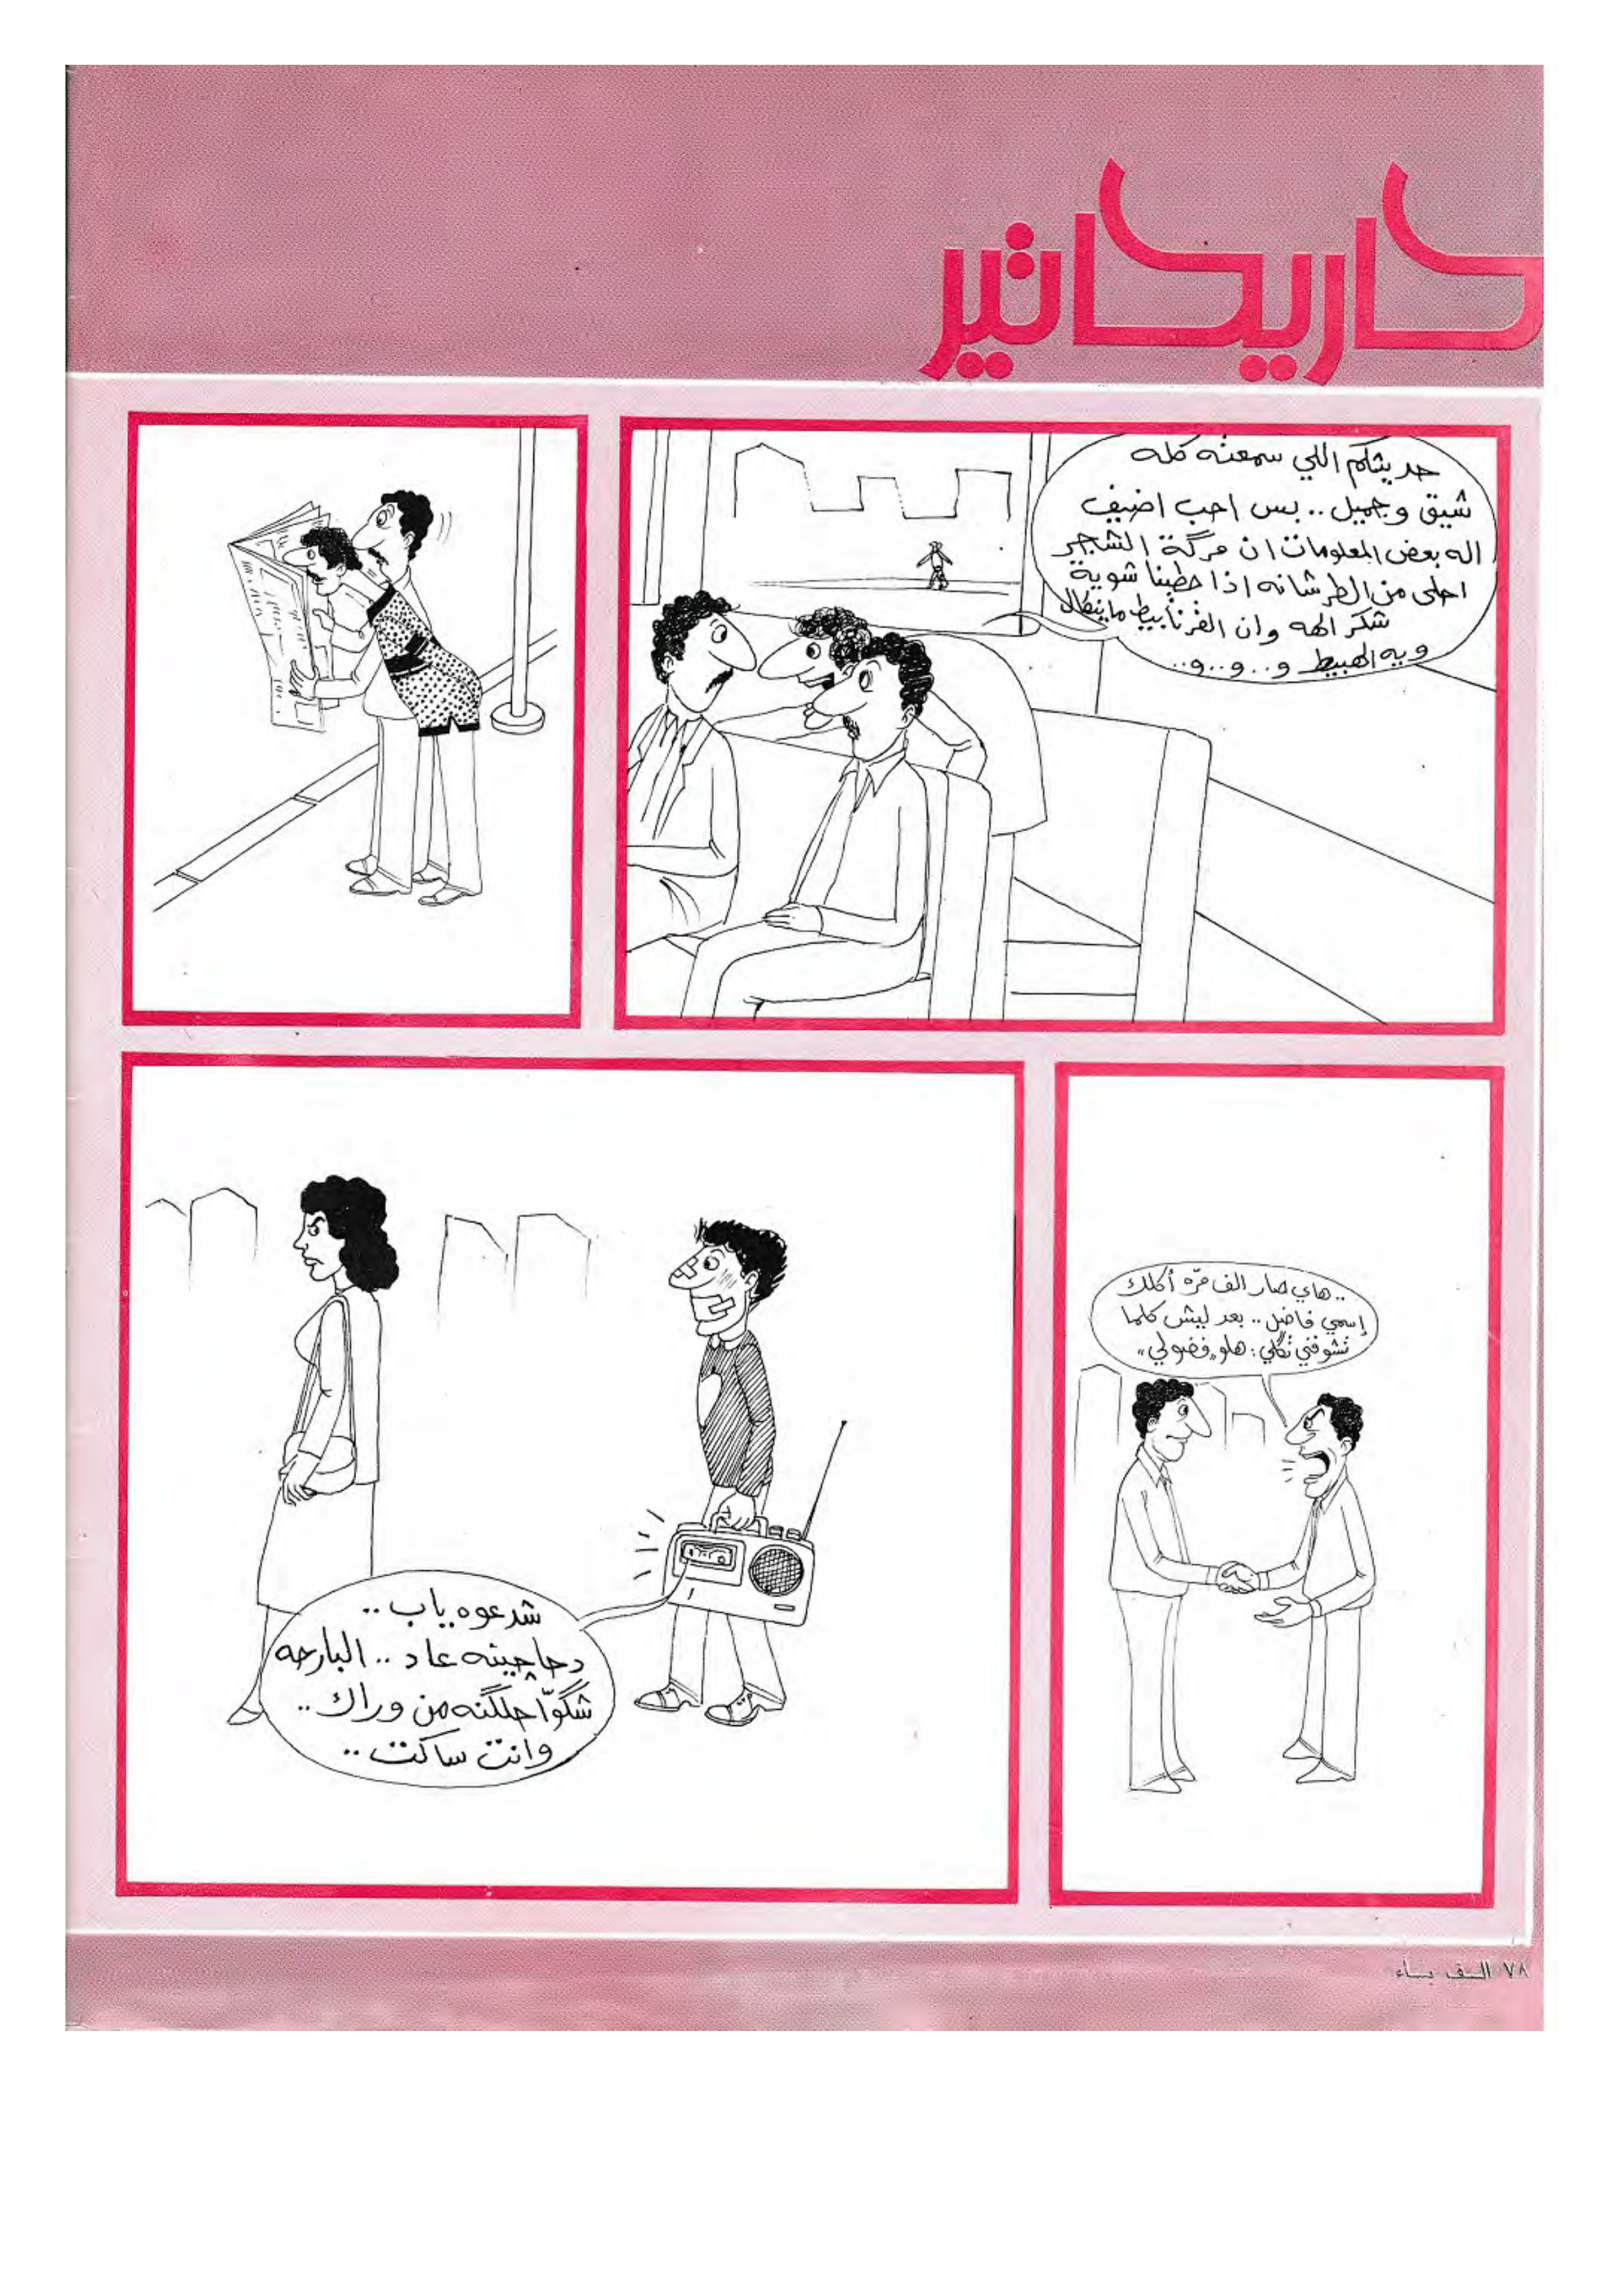 كاريكاتير
حديثكم اللي سمعته كله
شيق وجميل .. بس احب اضيف
اله بعض المعلومات ان مركة الشجر
احلى من الطرشانه اذا حطينا شوية
شكر الهه وان القرنابيط ماينكال
ويه الهبيط و..و..و..
.. هاي صار الف مرّه أكلك
إسمي فاضل .. بعد ليش كلما
تشوفني تگلي: هلو «فضولي»
شدعوه ياب ..
دحاچينه عاد .. البارحه
شگوا حلگنه من وراك ..
وانت ساكت ..
٧٨ الف باء